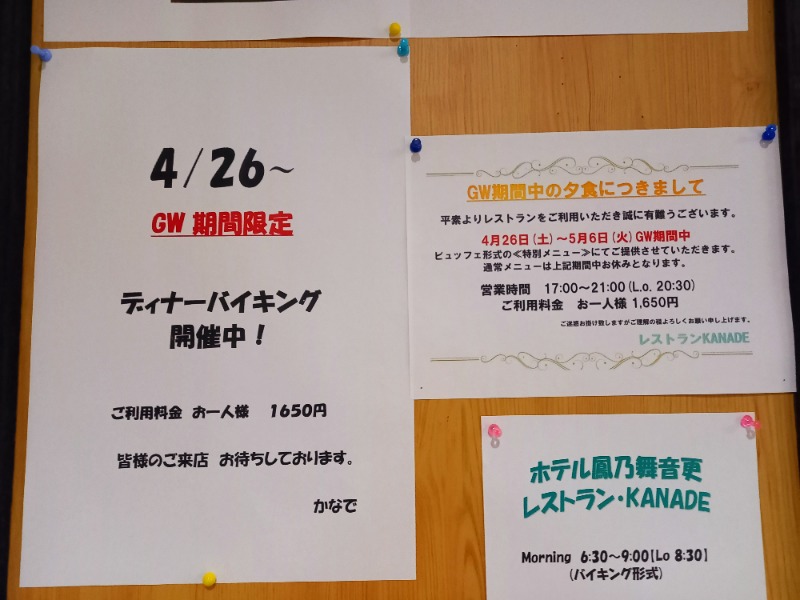 4/26~
GW 期間限定
ディナーバイキング
開催中！
ご利用料金 お一人様 1650円
皆様のご来店 お待ちしております。
かなで
GW期間中の夕食につきまして
平素よりレストランをご利用いただき誠に有難うございます。
4月26日(土)～5月6日(火)GW期間中
ビュッフェ形式の≪特別メニュー≫にてご提供させていただきます。
通常メニューは上記期間中お休みとなります。
営業時間 17:00～21:00(L.o. 20:30)
ご利用料金 お一人様 1,650円
ご迷惑お掛け致しますがご理解の程よろしくお願い申し上げます。
レストランKANADE
ホテル鳳乃舞音更
レストラン・KANADE
Morning 6:30～9:00【Lo 8:30】
(バイキング形式)